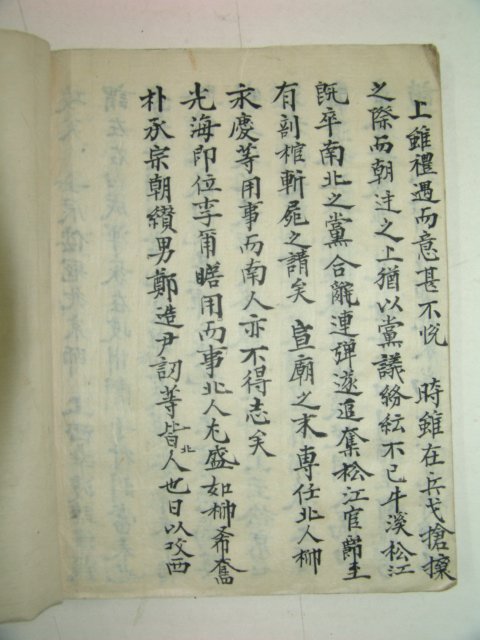 上雖禮遇而意甚不悅 時雖在兵戈搶攘
之際而朝迬之上猶以黨議紛紜不已牛溪松江
旣卒南北之黨合辭連彈遂追奪松江官節至
有剖棺斬屍之請矣 宣廟之末專任北人柳
永慶等用事而南人亦不得志矣
光海卽位李爾瞻用而事北人尤盛如柳希奮
朴承宗朝纘男鄭造尹訒等皆北人也日以攻西